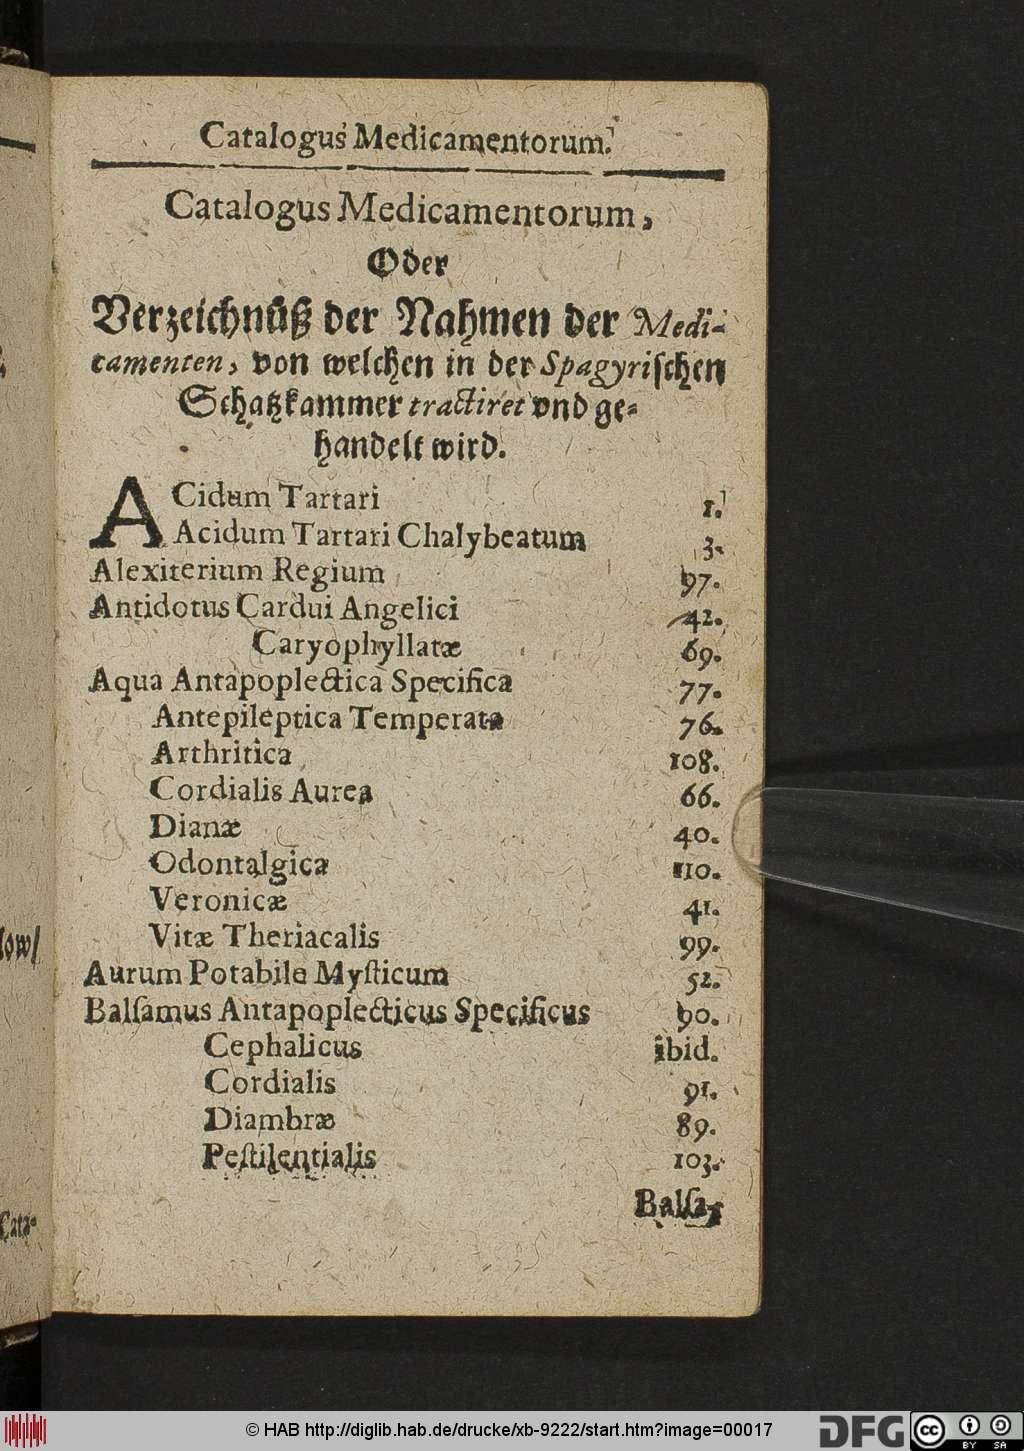 Catalogus Medicamentorum.
Catalogus Medicamentorum,
Oder
Verzeichnüß der Nahmen der Medi-
camenten, von welchen in der Spagyrischen
Schatzkammer tractiret vnd ge-
handelt wird.
ACidum Tartari 1.
Acidum Tartari Chalybeatum 3.
Alexiterium Regium 97.
Antidotus Cardui Angelici 42.
Caryophyllatæ 69.
Aqua Antapoplectica Specifica 77.
Antepileptica Temperata 76.
Arthritica 108.
Cordialis Aurea 66.
Dianæ 40.
Odontalgica 110.
Veronicæ 41.
Vitæ Theriacalis 99.
Aurum Potabile Myſticum 52.
Balſamus Antapoplecticus Specificus 90.
Cephalicus ibid.
Cordialis 91.
Diambræ 89.
Peſtilentialis 103.
Balſa-
Cata-
© HAB http://diglib.hab.de/drucke/xb-9222/start.htm?image=00017
DFG
cc
BY SA